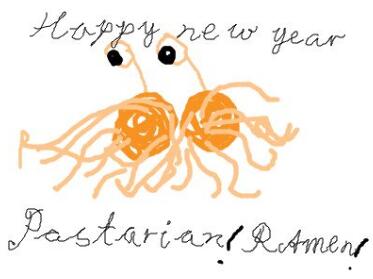 Happy new year
Pastarian! RAmen!